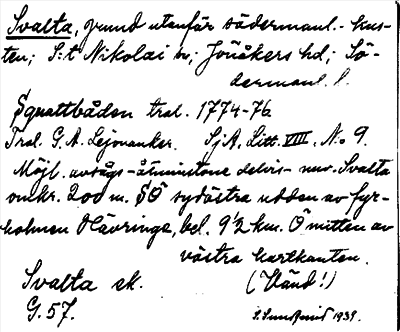 Svalta, grund utanför södermanl.-kus-
ten; S:t Nikolai sn; Jönåkers hd; Sö-
dermanl. l.
Squattbåden tral. 1774-76
Tral. G. A. Lejonanker. SjA. Litt. VIII. No 9.
Möjl. avsågs - åtminstone delvis - nuv. Svalta
omkr. 200 m. SÖ sydöstra udden av fyr-
holmen Hävringe, bel. 9½ km. Ö mitten av
västra kartkanten.
Svalta sk. (Vänd!)
G. 57. 1939.